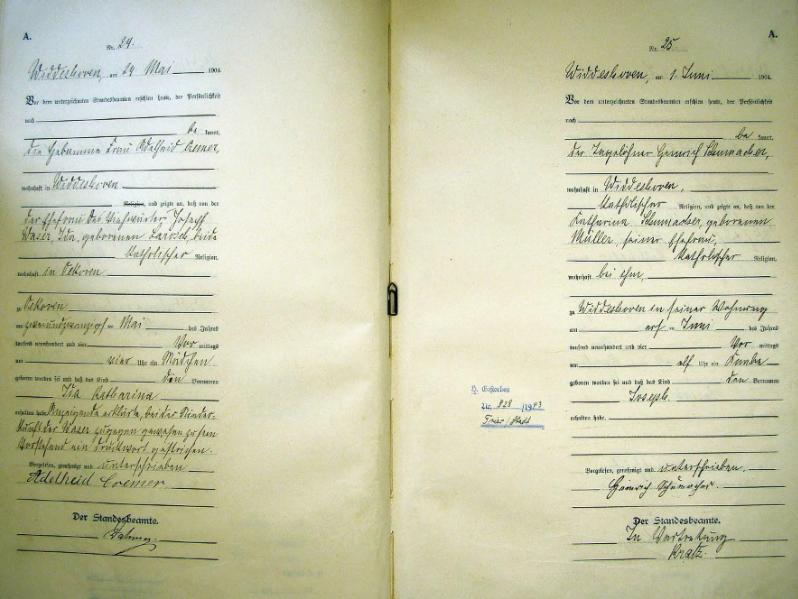 A.
Nr. 24.
Widdeshoven, am 24 Mai 1904.
Vor dem unterzeichneten Standesbeamten erschien heute, der Persönlichkeit
nach
be kannt,
die Hebamme Frau Adelheid Cremer
wohnhaft in Widdeshoven
Religion, und zeigte an, daß von der
der Ehefrau des Joseph
Waser, Ida, geborenen beide
katholischer Religion,
wohnhaft in Oekoven
zu Oekoven
am Mai des Jahres
tausend neunhundert und vier Vor mittags
um vier Uhr ein Mädchen
geboren worden sei und daß das Kind den Vornamen
Ida Katharina
erhalten habe. Anzeigende erklärte, bei der Nieder-
kunft der Waser zugegen gewesen zu sein
Vorstehend ein Druckwort gestrichen.
Vorgelesen, genehmigt und unterschrieben
Adelheid Cremer
Der Standesbeamte.
A.
Nr. 25
Widdeshoven, am 1. Juni 1904.
Vor dem unterzeichneten Standesbeamten erschien heute, der Persönlichkeit
nach
be kannt,
der Tagelöhner Heinrich Schumacher,
wohnhaft in Widdeshoven,
katholischer Religion, und zeigte an, daß von der
Katharina Schumacher, geborenen
Müller, seiner Ehefrau,
katholischer Religion,
wohnhaft bei ihm,
zu Widdeshoven in seiner Wohnung
am Juni des Jahres
tausend neunhundert und vier Vor mittags
um elf Uhr ein Knabe
geboren worden sei und daß das Kind den Vornamen
Joseph
erhalten habe.
Vorgelesen, genehmigt und unterschrieben.
Heinrich Schumacher.
Der Standesbeamte.
In Vertretung
Kratz.
Gestorben
Nr. 828 /1943